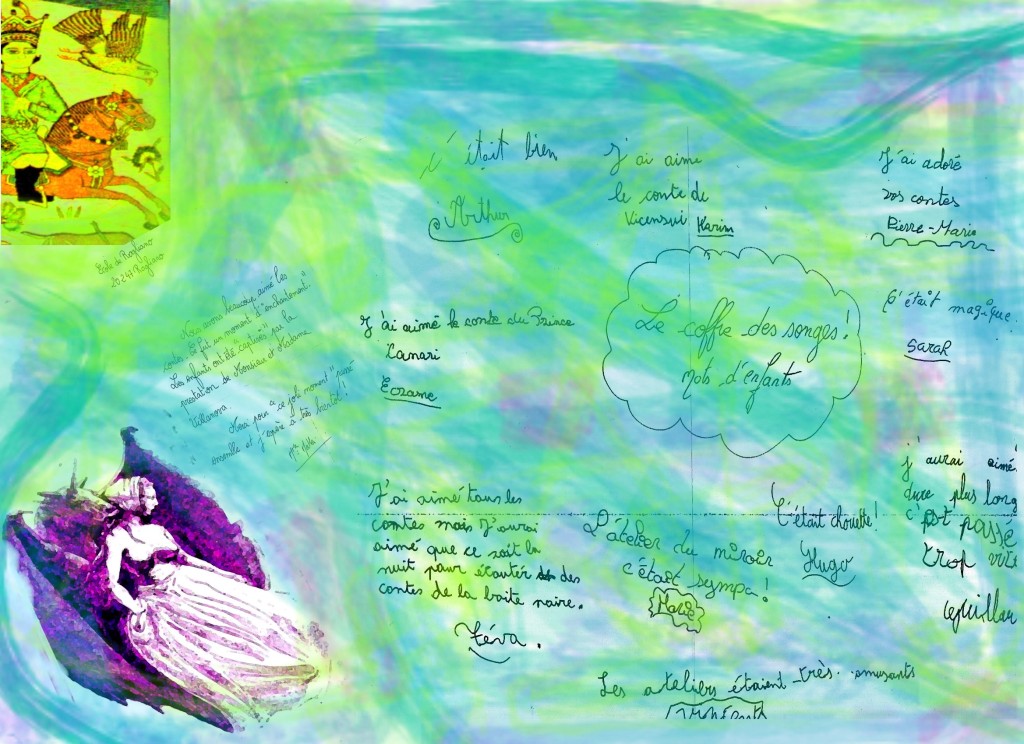 c'était bien
Arthur
J'ai aimé
le conte de
Vicensui Karim
J'ai adoré
vos contes
Pierre-Marie
Ecole de Rogliano
20247 Rogliano
Nous avons beaucoup aimé les
contes. Ce fut un moment d'"enchantement".
Les enfants ont été "captivés" par la
prestation de Monsieur et Madame
Villanova
Merci pour "ce joli moment" passé
ensemble et j'espère à très bientôt!
J'ai aimé le conte du Prince
Canari
Le coffre des songes!
Mots d'enfants
C'était magique.
Sarah
J'ai aimé tous les
contes mais J'aurai
aimé que ce soit la
nuit pour écouter des
contes de la boite noire.
Téva.
L'atelier du miroir
c'était sympa!
Marie
C'était chouette!
Hugo
j'aurai aimé
dure plus long
c'est passé
trop vite
Les ateliers étaient très amusants